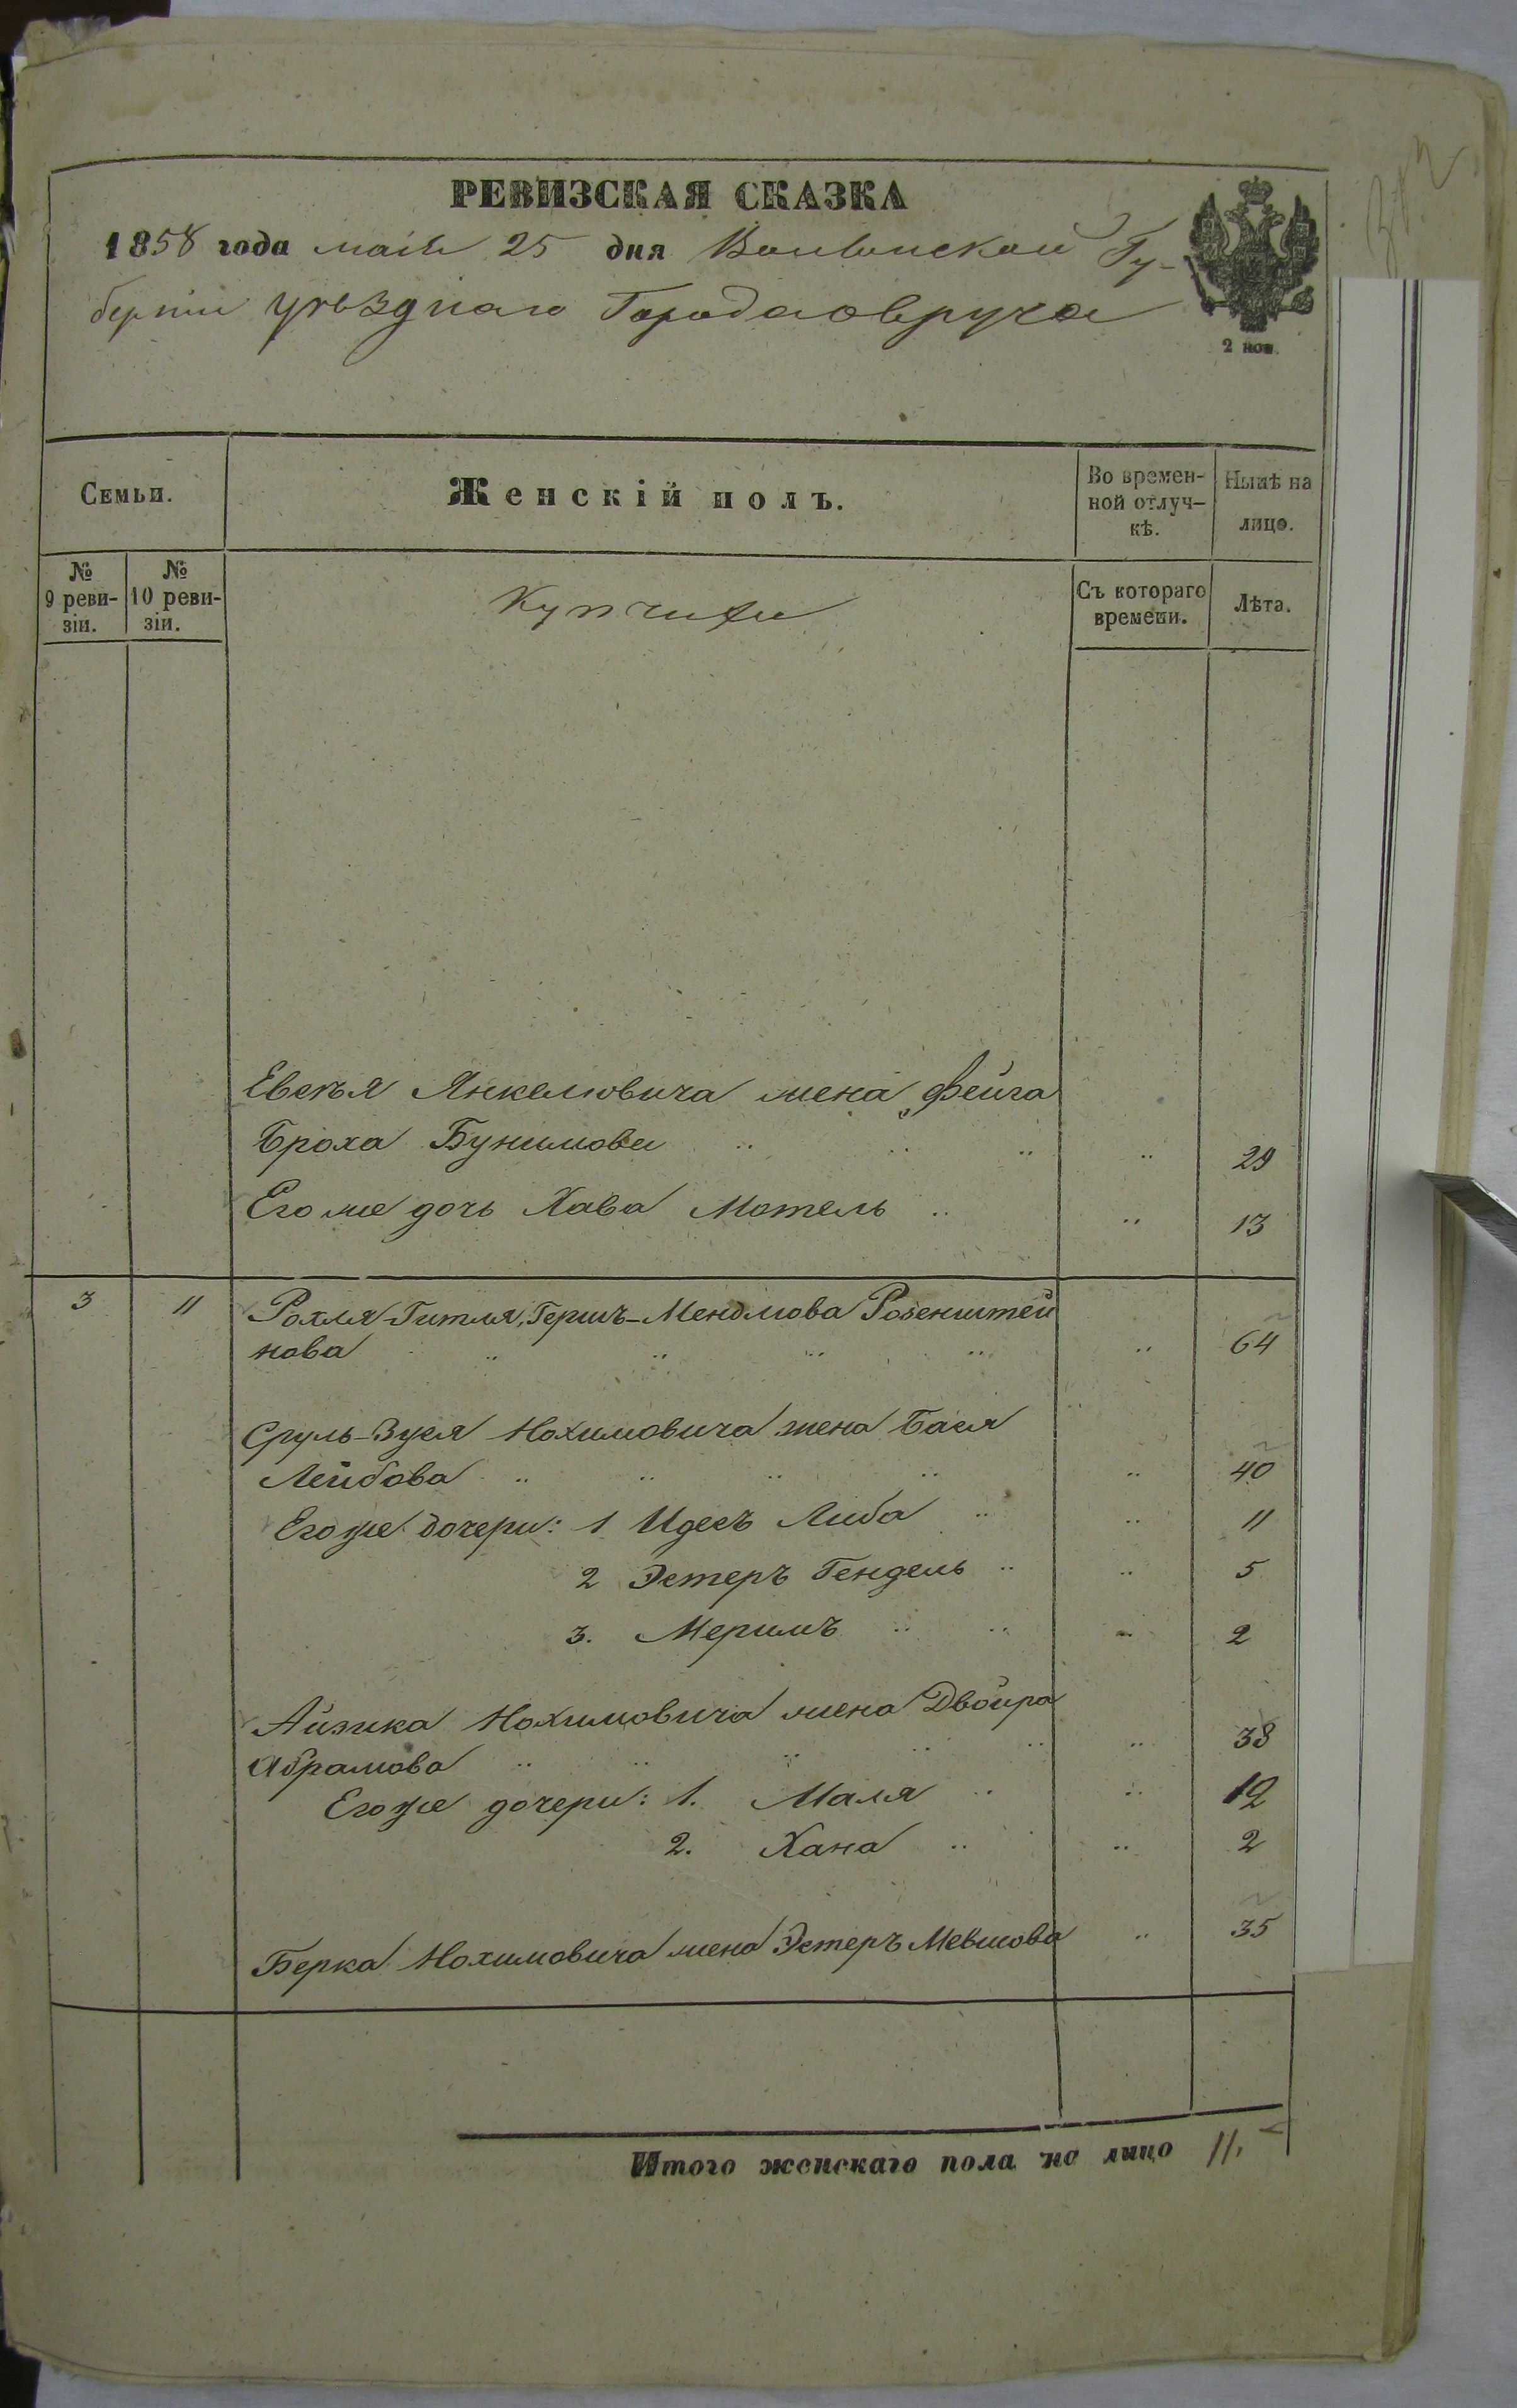 РЕВИЗСКАЯ СКАЗКА
1858 года маія 25 дня Волынской Гу-
берніи уѣзднаго Города Овруча
2 коп.
Семьи.
Женскій полъ.
Во времен-
ной отлуч-
кѣ.
Нынѣ на
лицо.
№
9 реви-
зіи.
№
10 реви-
зіи.
Купчихи
Съ котораго
времени.
Лѣта.
Евеля Янкелювича жена Фейга
Броха Бунимова " " " " 29
Его же дочь Хава Мотель " " 13
3 11 Рохля-Гитля, Гершъ-Мендлюва Розенштей
нова " " " " " 64
Сруль-Зуся Нохимовича жена Бася
Лейбова " " " " " 40
Его же дочери: 1 Идесъ Либа " " 11
2 Эстеръ Гендель " " 5
3. Меримъ " " " 2
Айзика Нохимовича жена Двойра
Абрамова " " " " " " 38
Его же дочери: 1. Маля " " 12
2. Хана " " 2
Берка Нохимовича жена Эстеръ Мевшова " 35
Итого женскаго пола на лицо 11.